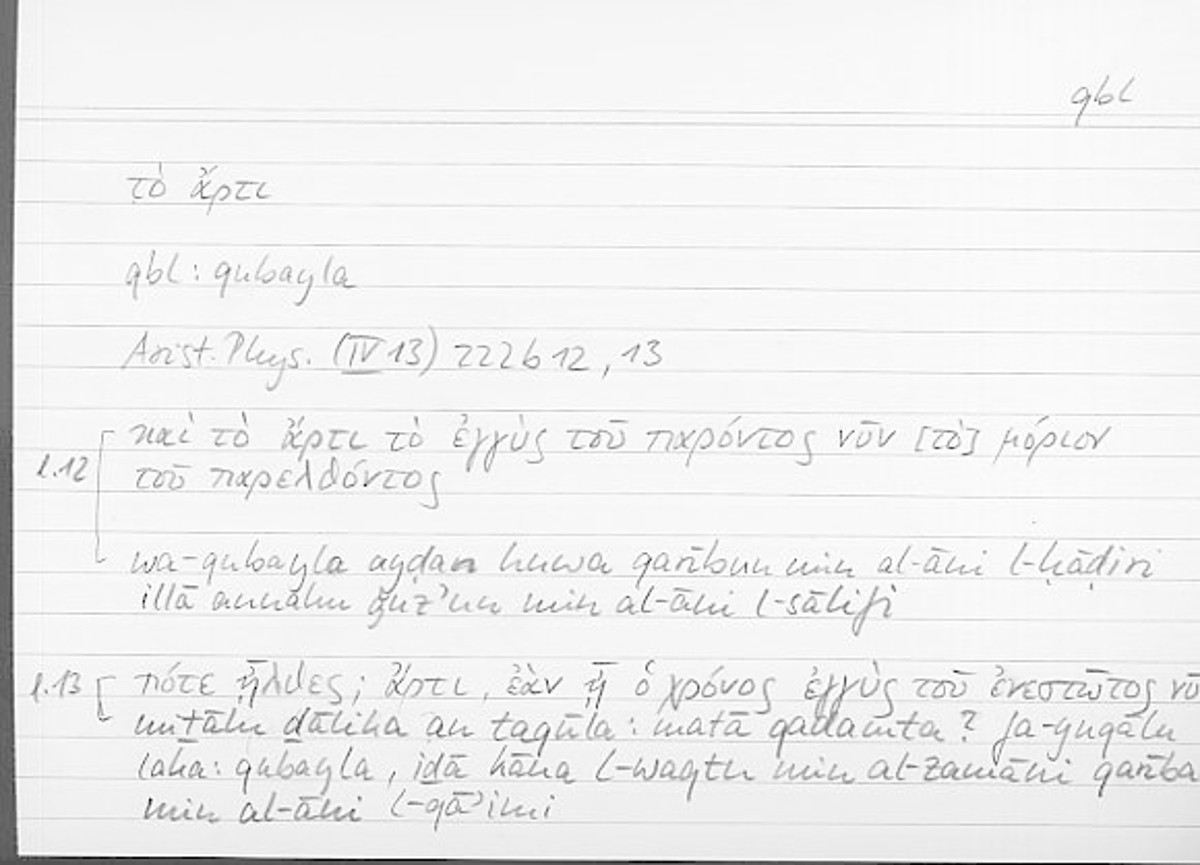 qbl
τὸ ἄρτι
qbl : qubayla
Arist. Phys. (IV 13) 222b12, 13
καὶ τὸ ἄρτι τὸ ἐγγὺς τοῦ παρόντος νῦν [τὸ] μόριον
l.12
τοῦ παρελθόντος
wa-qubayla ayḍan huwa qarībun min al-āni l-ḥāḍiri
illā annahu ǧuz'un min al-āni l-sālifi
l.13 πότε ἦλθες; ἄρτι, ἐὰν ᾖ ὁ χρόνος ἐγγὺς τοῦ ἐνεστῶτος νῦ
miṯālu ḏālika an taqūla : matā qadamta? fa-yuqālu
laka : qubayla, iḏā kāna l-waqtu min al-zamāni qarība
min al-āni l-qā'imi